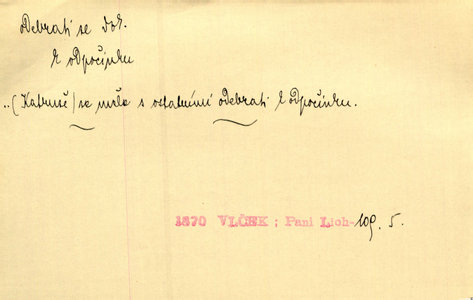 odebrati se dok.
k odpočinku
..(Katruše) se měla s ostatními odebrati k odpočinku.
1870 VLČEK ; Paní Lich- 109. 5.